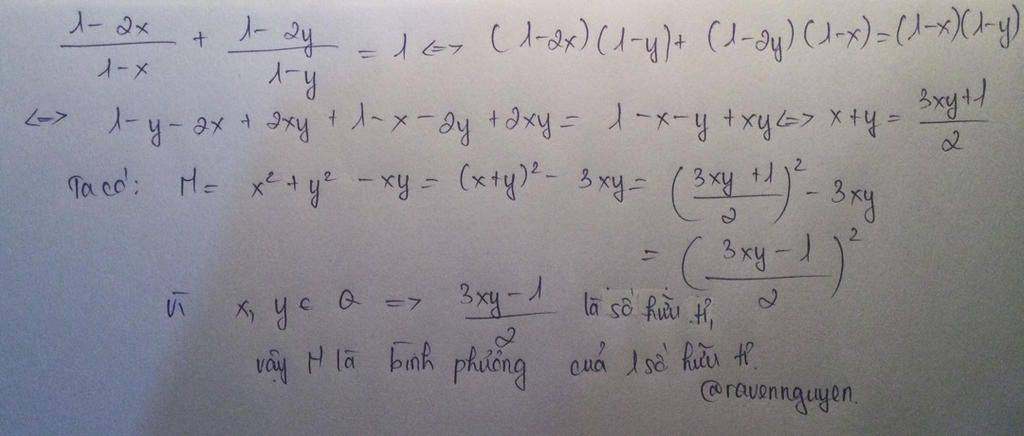 (1-2x)/(1-x) + (1-2y)/(1-y) = 1 <=> (1-2x)(1-y) + (1-2y)(1-x) = (1-x)(1-y)
<=> 1-y-2x+2xy+1-x-2y+2xy = 1-x-y+xy <=> x+y = (3xy+1)/2
Ta có: M = x² + y² - xy = (x+y)² - 3xy = ((3xy+1)/2)² - 3xy
= ((3xy-1)/2)²
Vì x, y ∈ Q => (3xy-1)/2 là số hữu tỉ,
vậy M là bình phương của 1 số hữu tỉ.
@ravennguyen.